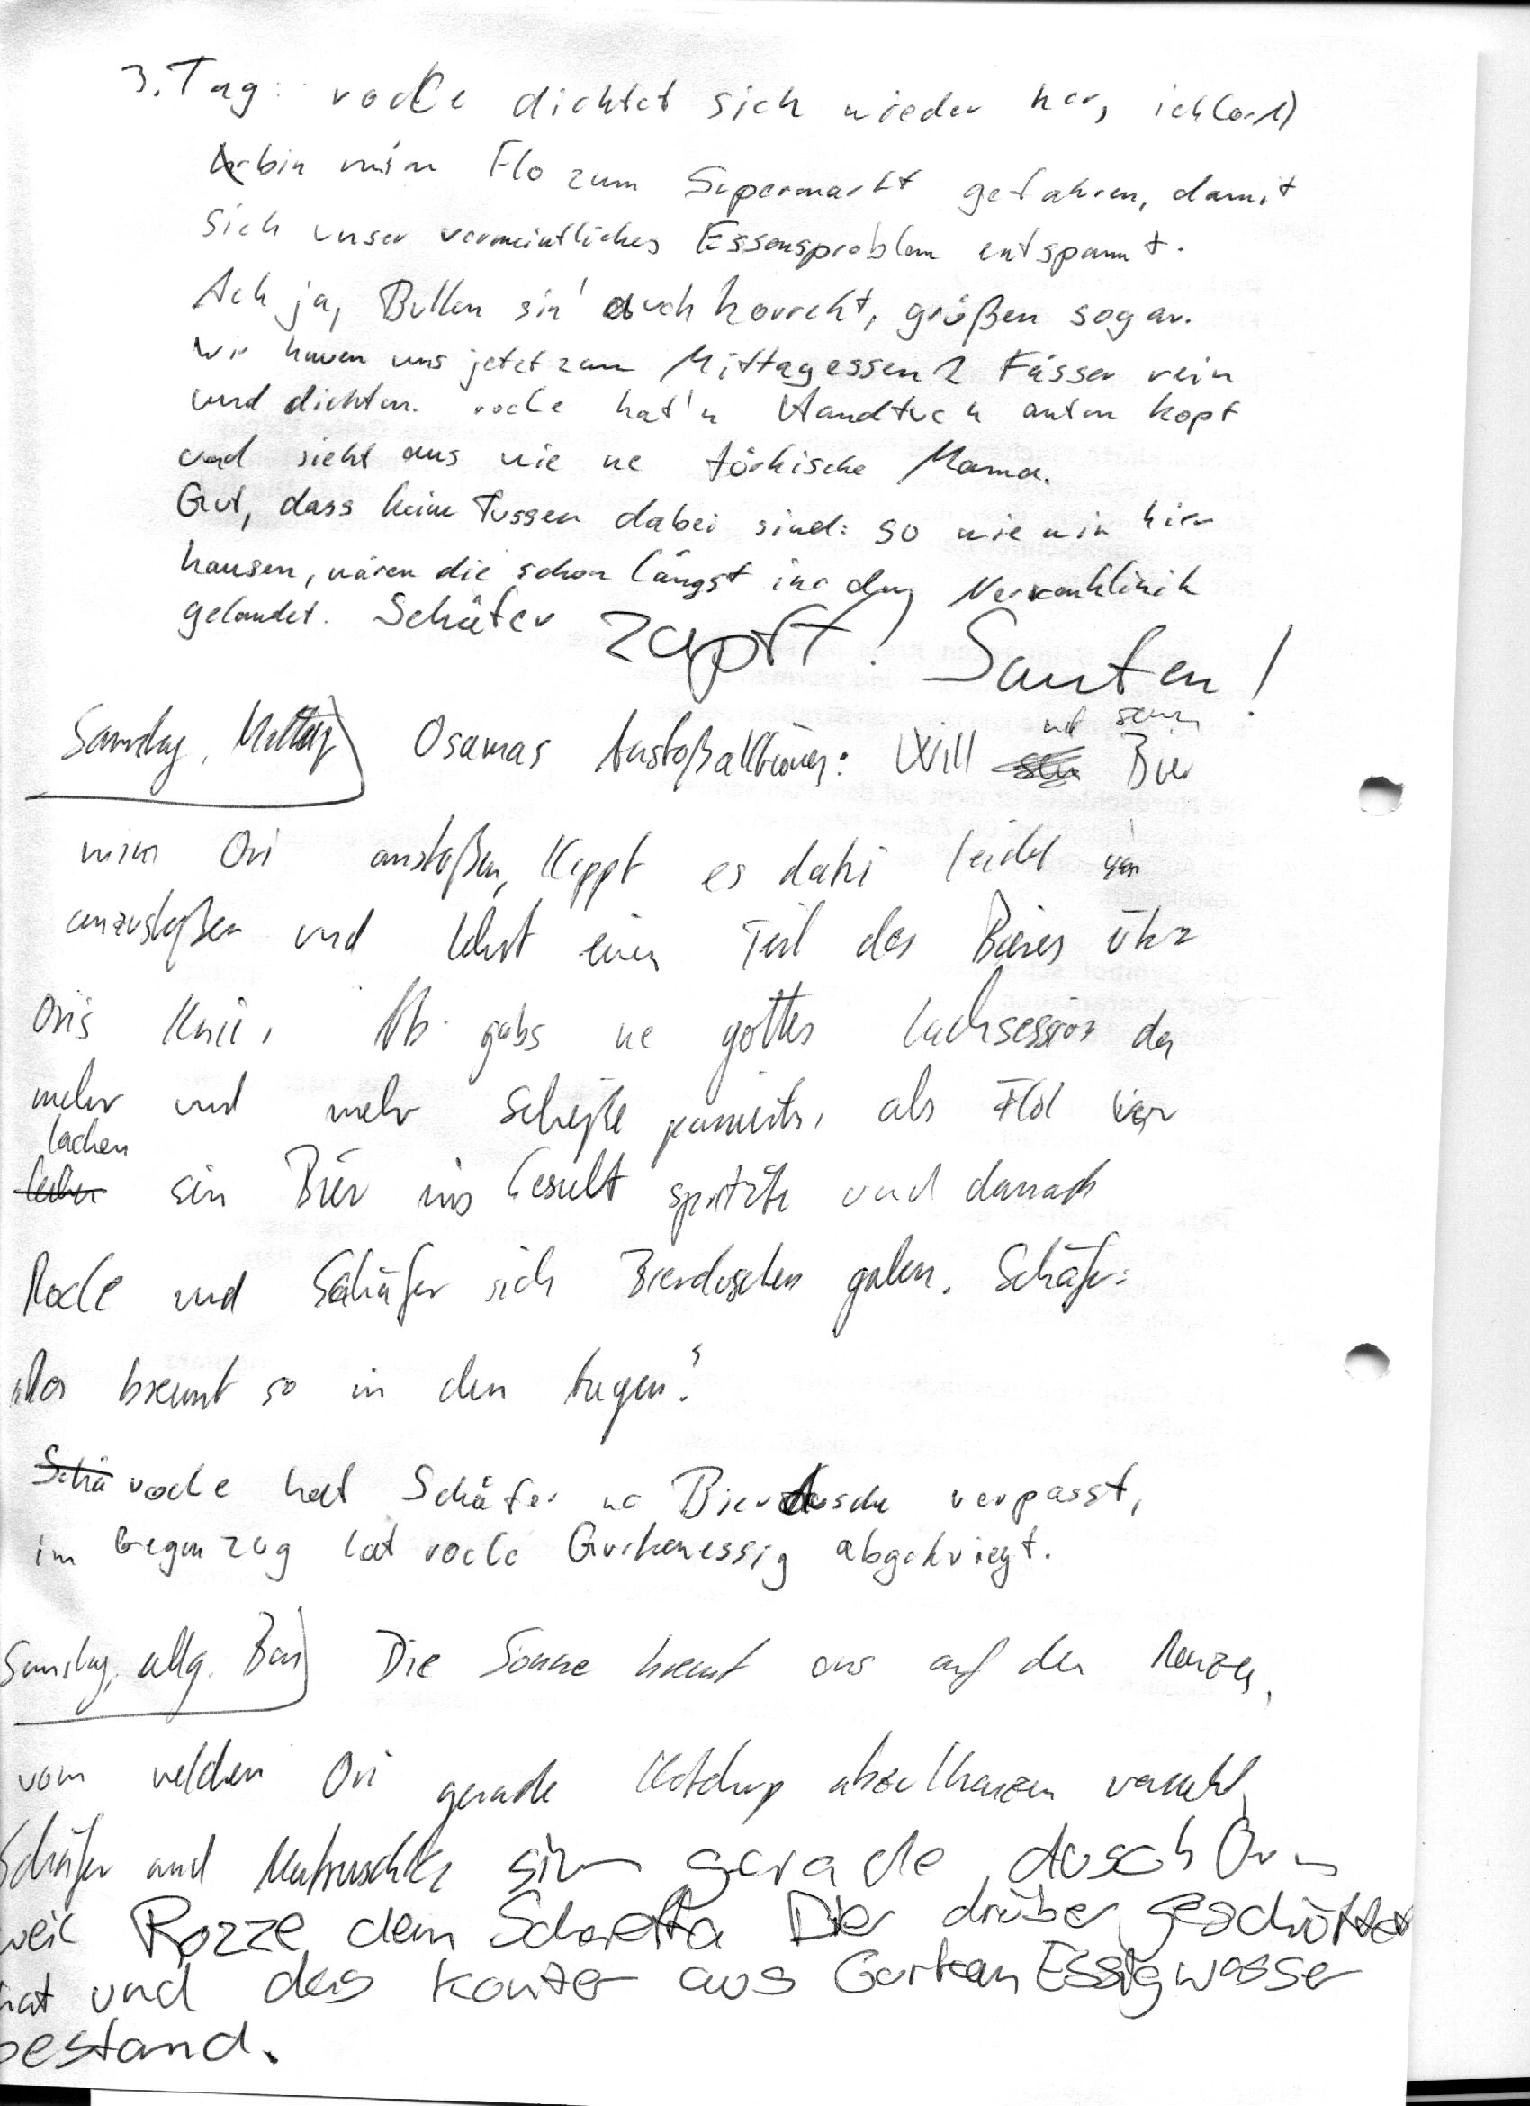 3. Tag: rocke dichtet sich wieder her, ich
bin mi'm Flo zum Supermarkt gefahren, damit
sich unser vermeintliches Essensproblem entspannt.
Ach ja, Bullen sin' auch korrekt, grüßen sogar.
Wir hauen uns jetzt zum Mittagessen 2 Fässer rein
und dichten. rocke hat'n Handtuch aufm kopf
und sieht aus wie ne törkische Mama.
Gut, dass keine Tussen dabei sind: so wie wir hier
hausen, wären die schon längst in der Nervenklinik
gelandet. Schäfer zapft! Saufen!
Samstag, Mittag) Osamas Anstoßaktionen: Will mit seinem Bier
mim Ori anstoßen, kippt es dabei leider
anzustoßen und leert einen Teil des Bieres über
Ori's Knie. Ab gabs ne Lachsession der
mehr und mehr Scheiße passierte, als Flo vor
lachen sein Bier ins Gesicht spritzte und danach
Rocke und Schäfer sich Bierduschen gaben. Schäfer:
"Das brennt so in den Augen!"
Schä rocke hat Schäfer ne Bierdusche verpasst,
im Gegenzug hat rocke Gurkenessig abgekriegt.
Samstag, allg. Bas) Die Sonne brennt uns auf den Ranzen,
vom welchen Ori gerade Ketchup abzulkratzen versucht,
Schäfer und Matruschka sin gerade duschörn
weil Rozze dem Scheffa Bier drüber geschüttet
hat und das konter aus Gurken Essigwasser
bestand.